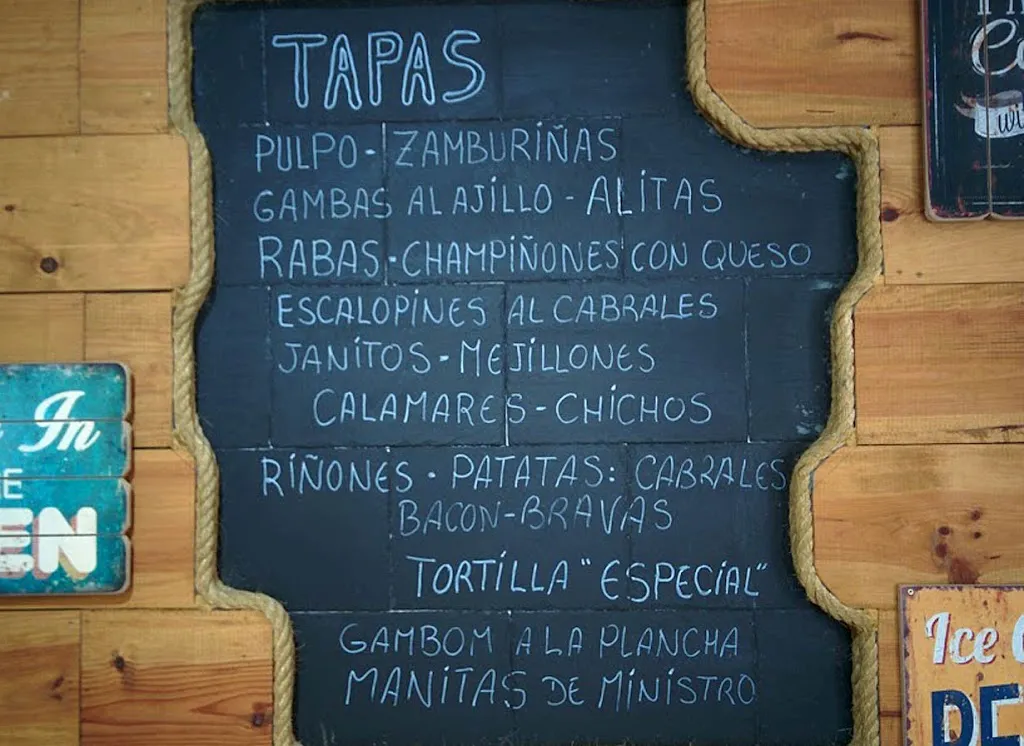 TAPAS
PULPO - ZAMBURIÑAS
GAMBAS AL AJILLO - ALITAS
RABAS - CHAMPIÑONES CON QUESO
ESCALOPINES AL CABRALES
JANITOS - MEJILLONES
CALAMARES - CHICHOS
RIÑONES - PATATAS: CABRALES
BACON - BRAVAS
TORTILLA "ESPECIAL"
GAMBOM A LA PLANCHA
MANITAS DE MINISTRO
In
EN
Co
Ice